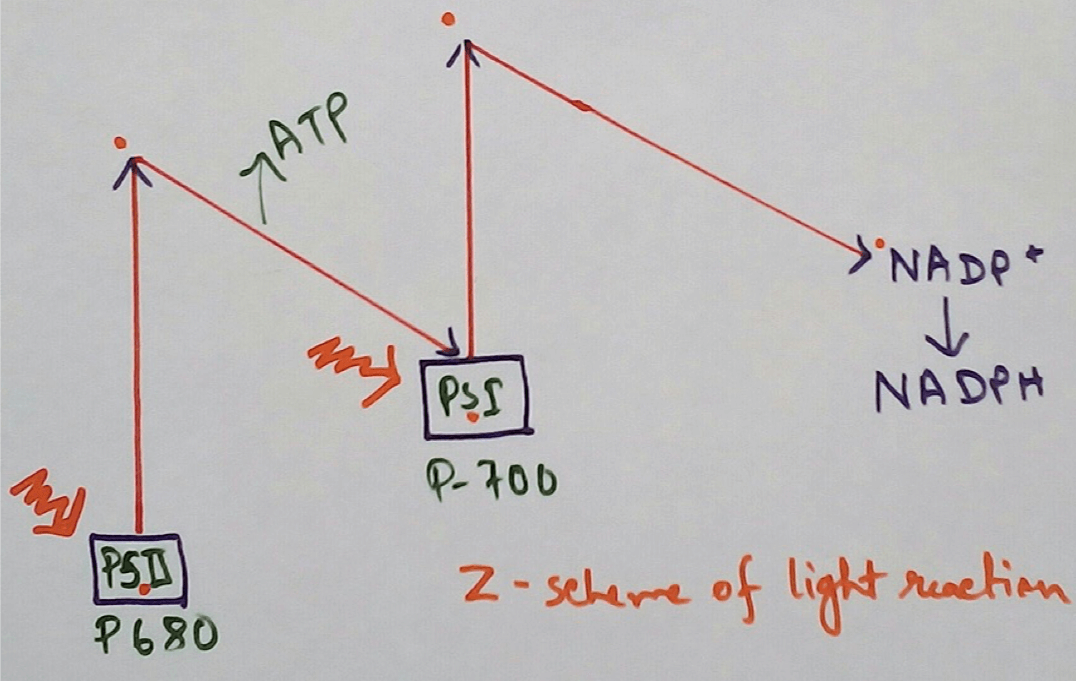 ATP
NADP+
NADPH
PSI
P-700
PSII
P680
Z-scheme of light reaction